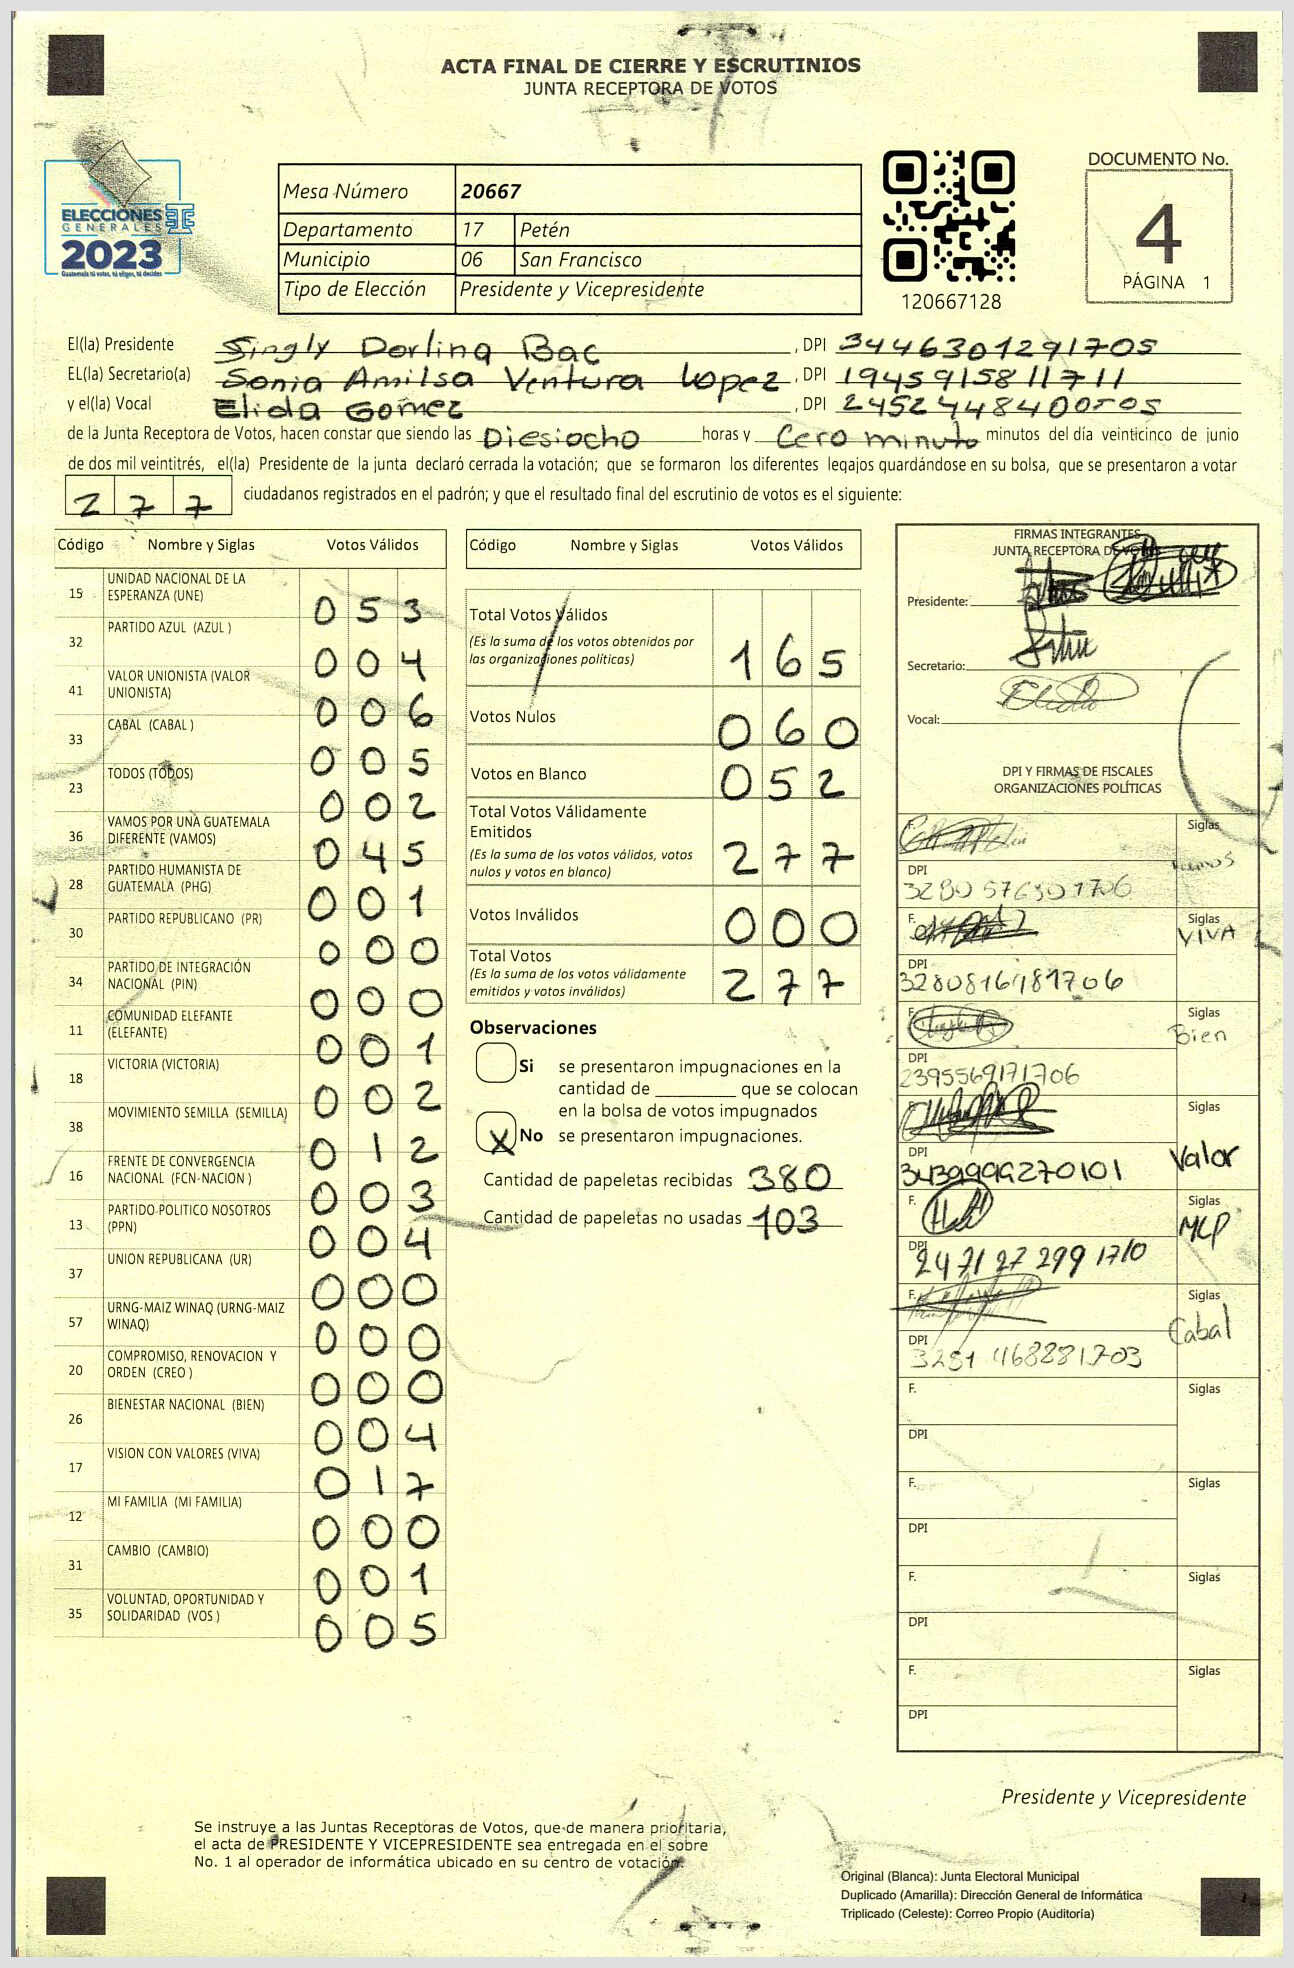 ACTA FINAL DE CIERRE Y ESCRUTINIOS
JUNTA RECEPTORA DE VOTOS
ELECCIONES
GENERALES
2023
Guatemala tú votas, tú eliges, tú decides
Mesa Número 20667
Departamento 17 Petén
Municipio 06 San Francisco
Tipo de Elección Presidente y Vicepresidente
120667128
DOCUMENTO No.
4
PÁGINA 1
El(la) Presidente Singly Dorlina Bac, DPI 3446301291705
EL(la) Secretario(a) Sonia Amilsa Ventura Lopez, DPI 1945915811711
y el(la) Vocal Elida Gomez, DPI 2452448400505
de la Junta Receptora de Votos, hacen constar que siendo las Diesiocho horas y Cero minuto minutos del día veinticinco de junio
de dos mil veintitrés, el(la) Presidente de la junta declaró cerrada la votación; que se formaron los diferentes legajos guardándose en su bolsa, que se presentaron a votar
277 ciudadanos registrados en el padrón; y que el resultado final del escrutinio de votos es el siguiente:
Código Nombre y Siglas Votos Válidos
15 UNIDAD NACIONAL DE LA ESPERANZA (UNE) 053
32 PARTIDO AZUL (AZUL ) 004
41 VALOR UNIONISTA (VALOR UNIONISTA) 006
33 CABAL (CABAL ) 005
23 TODOS (TODOS) 002
36 VAMOS POR UNA GUATEMALA DIFERENTE (VAMOS) 045
28 PARTIDO HUMANISTA DE GUATEMALA (PHG) 001
30 PARTIDO REPUBLICANO (PR) 000
34 PARTIDO DE INTEGRACIÓN NACIONAL (PIN) 000
11 COMUNIDAD ELEFANTE (ELEFANTE) 001
18 VICTORIA (VICTORIA) 002
38 MOVIMIENTO SEMILLA (SEMILLA) 012
16 FRENTE DE CONVERGENCIA NACIONAL (FCN-NACION ) 003
13 PARTIDO POLITICO NOSOTROS (PPN) 004
37 UNION REPUBLICANA (UR) 000
57 URNG-MAIZ WINAQ (URNG-MAIZ WINAQ) 000
20 COMPROMISO, RENOVACION Y ORDEN (CREO ) 000
26 BIENESTAR NACIONAL (BIEN) 004
17 VISION CON VALORES (VIVA) 017
12 MI FAMILIA (MI FAMILIA) 000
31 CAMBIO (CAMBIO) 001
35 VOLUNTAD, OPORTUNIDAD Y SOLIDARIDAD (VOS ) 005
Código Nombre y Siglas Votos Válidos
Total Votos Válidos
(Es la suma de los votos obtenidos por
las organizaciones políticas) 165
Votos Nulos 060
Votos en Blanco 052
Total Votos Válidamente
Emitidos
(Es la suma de los votos válidos, votos
nulos y votos en blanco) 277
Votos Inválidos 000
Total Votos
(Es la suma de los votos válidamente
emitidos y votos inválidos) 277
Observaciones
Si se presentaron impugnaciones en la
cantidad de ________ que se colocan
en la bolsa de votos impugnados
X No se presentaron impugnaciones.
Cantidad de papeletas recibidas 380
Cantidad de papeletas no usadas 103
FIRMAS INTEGRANTES
JUNTA RECEPTORA DE VOTOS
Presidente:
Secretario:
Vocal:
DPI Y FIRMAS DE FISCALES
ORGANIZACIONES POLÍTICAS
F. Siglas Vamos
DPI 3280576301706
F. Siglas VIVA
DPI 3280816481706
F. Siglas Bien
DPI 2395569171706
F. Siglas Valor
DPI 3439999270101
F. Siglas MLP
DPI 2471272991710
F. Siglas Cabal
DPI 3251468281703
F. Siglas
DPI
F. Siglas
DPI
F. Siglas
DPI
F. Siglas
DPI
Presidente y Vicepresidente
Se instruye a las Juntas Receptoras de Votos, que de manera prioritaria,
el acta de PRESIDENTE Y VICEPRESIDENTE sea entregada en el sobre
No. 1 al operador de informática ubicado en su centro de votación.
Original (Blanca): Junta Electoral Municipal
Duplicado (Amarilla): Dirección General de Informática
Triplicado (Celeste): Correo Propio (Auditoría)